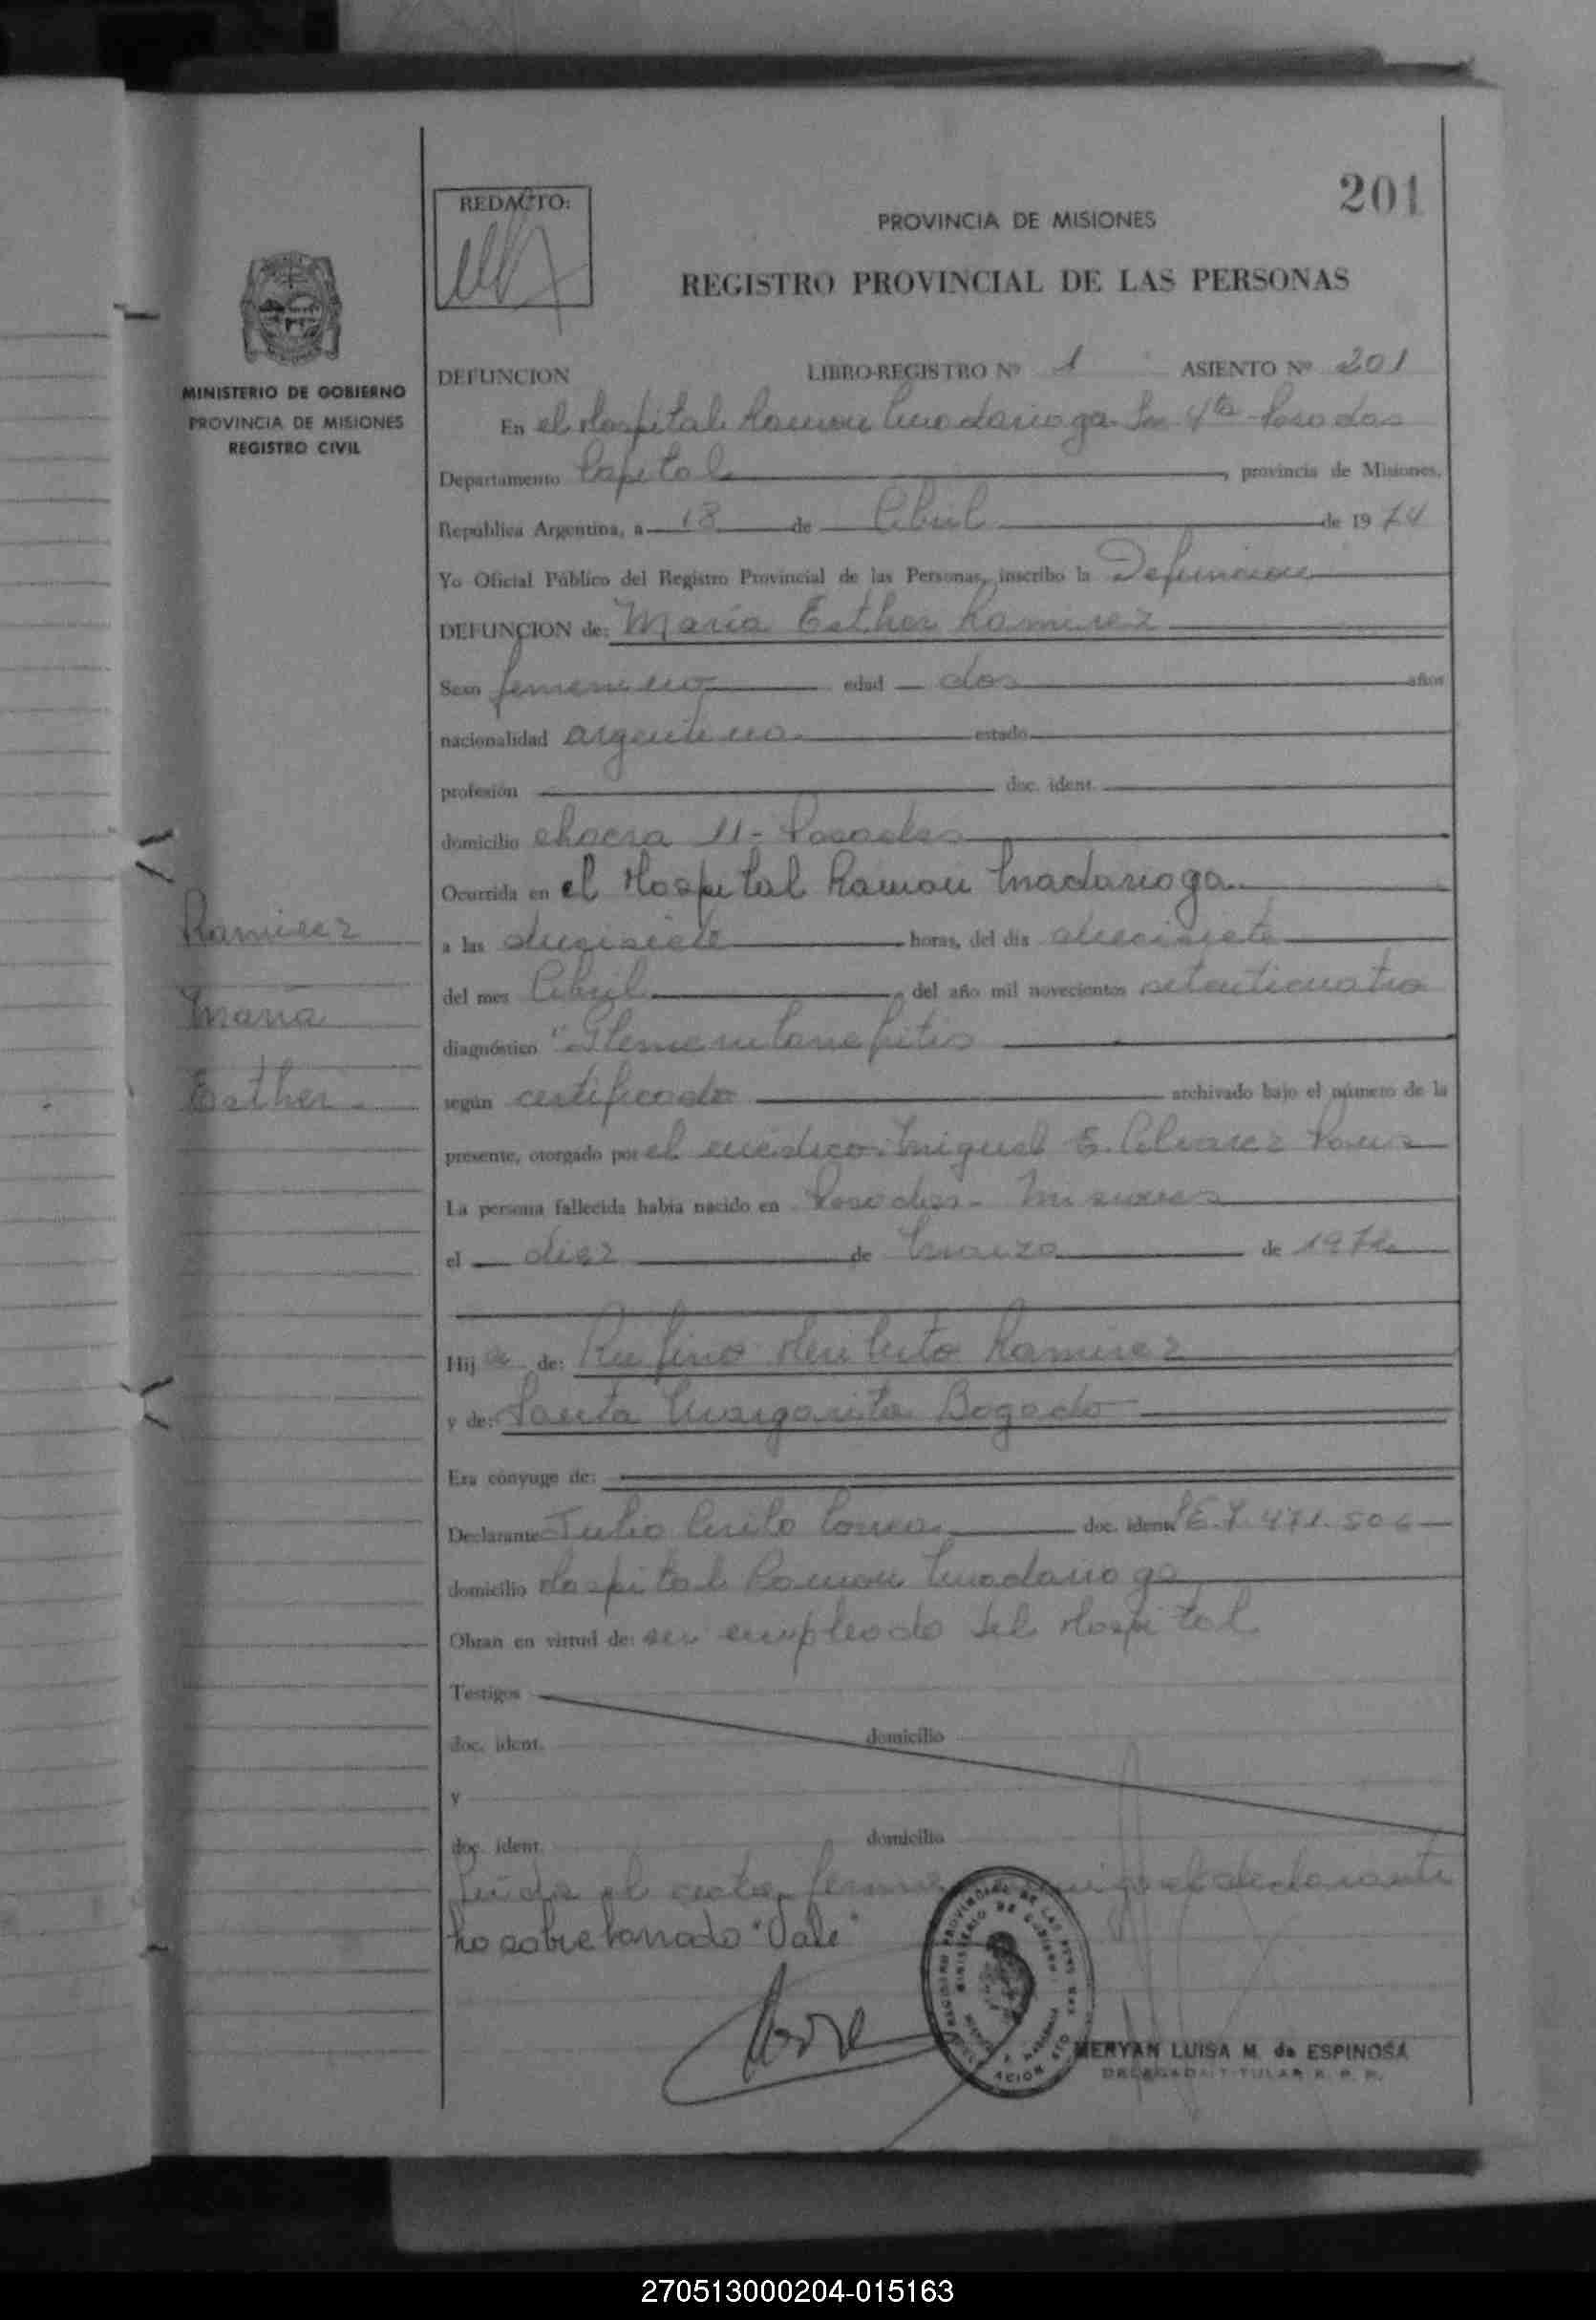 201
REDACTO:
PROVINCIA DE MISIONES
REGISTRO PROVINCIAL DE LAS PERSONAS
MINISTERIO DE GOBIERNO
PROVINCIA DE MISIONES
REGISTRO CIVIL
DEFUNCION LIBRO-REGISTRO Nº 1 ASIENTO Nº 201
En el Hospital Ramon Madariaga Sec 4ta Posadas
Departamento Capital, provincia de Misiones,
República Argentina, a 18 de Abril de 1974
Yo Oficial Público del Registro Provincial de las Personas, inscribo la Defuncion
DEFUNCION de: Maria Esther Ramirez
Sexo femenino edad dos años
nacionalidad argentina estado
profesión doc. ident.
domicilio chacra 11 - Posadas
Ocurrida en el Hospital Ramon Madariaga
Ramirez
a las diecisiete horas, del día diecisiete
del mes Abril, del año mil novecientos setenticuatro
Maria
diagnóstico
Esther
según certificado archivado bajo el número de la
presente, otorgado por el medico Miguel E. Alvarez
La persona fallecida había nacido en Posadas - Misiones
el diez de Marzo de 1972
Hija de: Rufino Heriberto Ramirez
y de: Santa Margarita Bogado
Era cónyuge de:
Declarante Julio Cirilo doc. ident. LE 7.471.506
domicilio Hospital Ramon Madariaga
Obran en virtud de: ser empleado del Hospital
Testigos
doc. ident. domicilio
y
doc. ident. domicilio
Leída el acta, firma conmigo el declarante
ho sobre borrado "Vale"
MERYAN LUISA M. de ESPINOSA
DELEGADA TITULAR R. P. P.
270513000204-015163